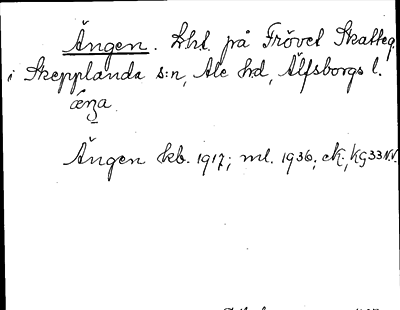 Ängen. Lht. på Frövet Skatteg.
i Skepplanda s:n, Ale hd, Älfsborgs l.
ænʒa
Ängen kb. 1917; ml. 1936; ek; KG33N.V.